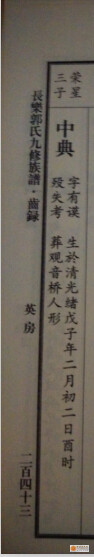 榮星
三子
中典
字有谟 生於清光緒戊子年二月初二日酉时
殁失考 葬观音桥人形
長樂郭氏九修族譜·齒録
英房
二百四十三